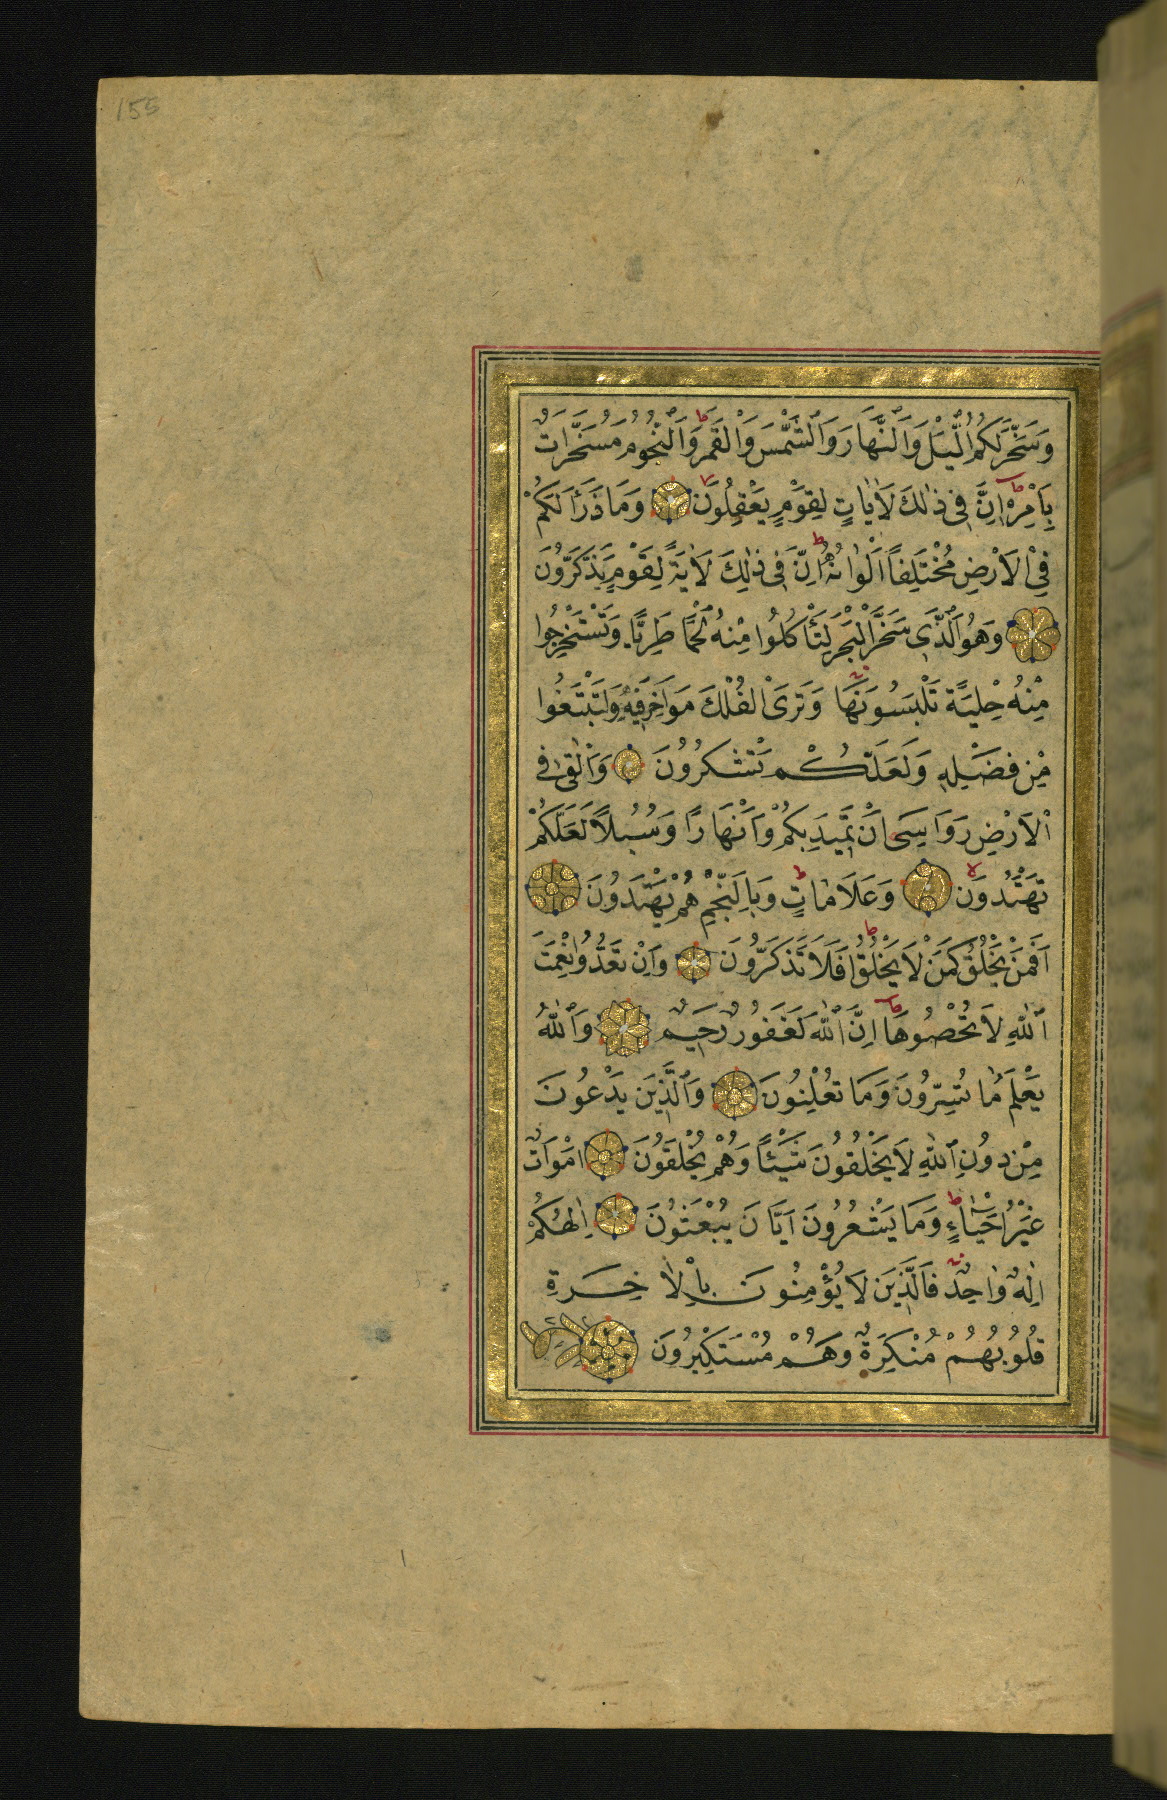 155
وَسَخَّرَ لَكُمُ الَّيْلَ وَالنَّهَارَ وَالشَّمْسَ وَالْقَمَرَ وَالنُّجُومُ مُسَخَّرَاتٌ
بِاَمْرِهِ اِنَّ فِي ذٰلِكَ لَاٰيَاتٍ لِقَوْمٍ يَعْقِلُونَ وَمَا ذَرَاَ لَكُمْ
فِي الْاَرْضِ مُخْتَلِفًا اَلْوَانُهُ اِنَّ فِي ذٰلِكَ لَاٰيَةً لِقَوْمٍ يَذَّكَّرُونَ
وَهُوَ الَّذِي سَخَّرَ الْبَحْرَ لِتَأْكُلُوا مِنْهُ لَحْمًا طَرِيًّا وَتَسْتَخْرِجُوا
مِنْهُ حِلْيَةً تَلْبَسُونَهَا وَتَرَى الْفُلْكَ مَوَاخِرَ فِيهِ وَلِتَبْتَغُوا
مِنْ فَضْلِهِ وَلَعَلَّكُمْ تَشْكُرُونَ وَاَلْقٰى فِي
الْاَرْضِ رَوَاسِيَ اَنْ تَمِيدَ بِكُمْ وَاَنْهَارًا وَسُبُلًا لَعَلَّكُمْ
تَهْتَدُونَ وَعَلَامَاتٍ وَبِالنَّجْمِ هُمْ يَهْتَدُونَ
اَفَمَنْ يَخْلُقُ كَمَنْ لَا يَخْلُقُ اَفَلَا تَذَكَّرُونَ وَاِنْ تَعُدُّوا نِعْمَتَ
اللّٰهِ لَا تُحْصُوهَا اِنَّ اللّٰهَ لَغَفُورٌ رَحِيمٌ وَاللّٰهُ
يَعْلَمُ مَا تُسِرُّونَ وَمَا تُعْلِنُونَ وَالَّذِينَ يَدْعُونَ
مِنْ دُونِ اللّٰهِ لَا يَخْلُقُونَ شَيْئًا وَهُمْ يُخْلَقُونَ اَمْوَاتٌ
غَيْرُ اَحْيَاءٍ وَمَا يَشْعُرُونَ اَيَّانَ يُبْعَثُونَ اِلٰهُكُمْ
اِلٰهٌ وَاحِدٌ فَالَّذِينَ لَا يُؤْمِنُونَ بِالْاٰخِرَةِ
قُلُوبُهُمْ مُنْكِرَةٌ وَهُمْ مُسْتَكْبِرُونَ